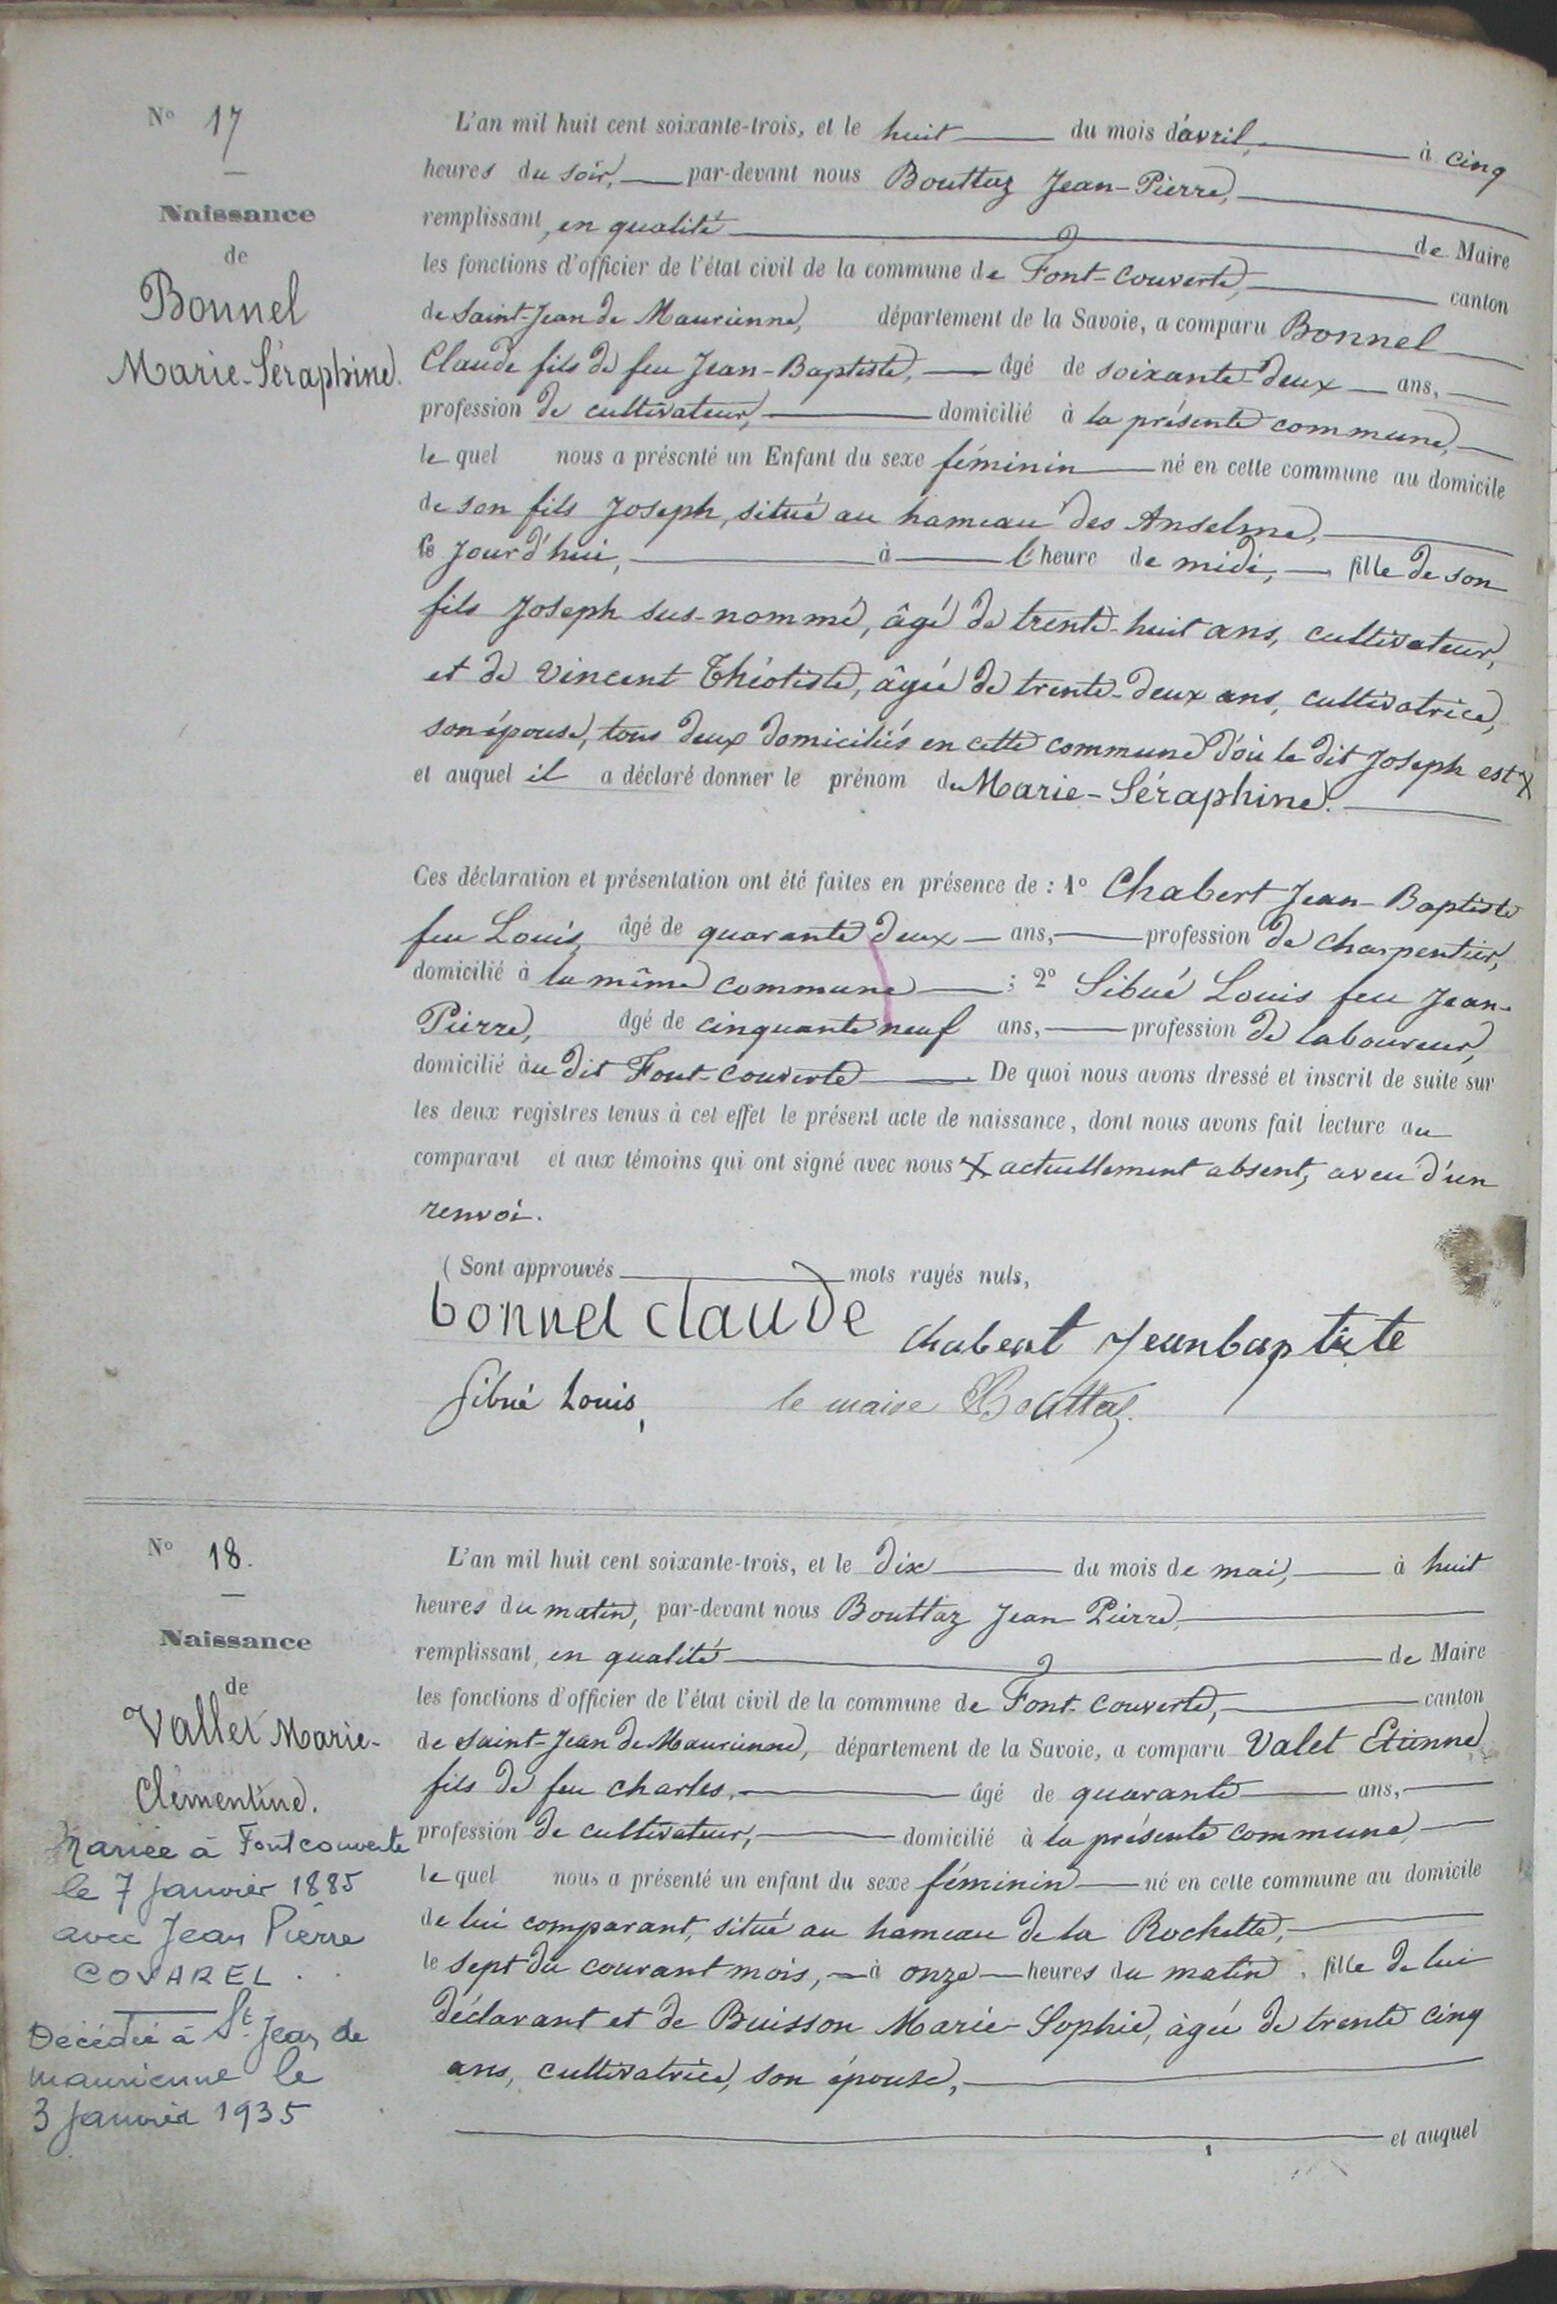 N° 17
Naissance
de
Bonnel
Marie-Séraphine.
L'an mil huit cent soixante-trois, et le huit du mois d'avril, à cinq
heures du soir, par-devant nous Bouttaz Jean-Pierre,
remplissant, en qualité de Maire
les fonctions d'officier de l'état civil de la commune de Font-couverte, canton
de Saint-Jean de Maurienne, département de la Savoie, a comparu Bonnel
Claude fils de feu Jean-Baptiste, âgé de soixante-deux ans,
profession de cultivateur, domicilié à la présente commune,
le quel nous a présenté un Enfant du sexe féminin né en cette commune au domicile
de son fils Joseph, situé au hameau des Anselme,
ce jourd'hui, à l'heure de midi, fille de son
fils Joseph sus-nommé, âgé de trente-huit ans, cultivateur,
et de Vincent Théotiste, âgée de trente-deux ans, cultivatrice,
son épouse, tous deux domiciliés en cette commune d'où le dit Joseph est X
et auquel il a déclaré donner le prénom de Marie-Séraphine.
Ces déclaration et présentation ont été faites en présence de : 1° Chabert Jean-Baptiste
feu Louis, âgé de quarante deux ans, profession de charpentier,
domicilié à la même commune ; 2° Sibué Louis feu Jean-
Pierre, âgé de cinquante neuf ans, profession de laboureur,
domicilié au dit Font-couverte De quoi nous avons dressé et inscrit de suite sur
les deux registres tenus à cet effet le présent acte de naissance, dont nous avons fait lecture au
comparant et aux témoins qui ont signé avec nous X actuellement absent, aveu d'un
renvoi.
(Sont approuvés mots rayés nuls,
bonnel claude chabert Jeanbaptiste
Sibué Louis, le maire Bouttaz
N° 18.
Naissance
de
Vallet Marie-
Clémentine.
Mariée à Fontcouverte
le 7 Janvier 1885
avec Jean Pierre
COVAREL.
Décédée à St Jean de
maurienne le
3 Janvier 1935
L'an mil huit cent soixante-trois, et le dix du mois de mai, à huit
heures du matin, par-devant nous Bouttaz Jean Pierre,
remplissant, en qualité de Maire
les fonctions d'officier de l'état civil de la commune de Font-couverte, canton
de Saint-Jean de Maurienne, département de la Savoie, a comparu Valet Etienne
fils de feu Charles, âgé de quarante ans,
profession de cultivateur, domicilié à la présente commune,
le quel nous a présenté un enfant du sexe féminin né en cette commune au domicile
de lui comparant, situé au hameau de la Rochette,
le sept du courant mois, à onze heures du matin, fille de lui
déclarant et de Buisson Marie-Sophie, âgée de trente cinq
ans, cultivatrice, son épouse,
et auquel